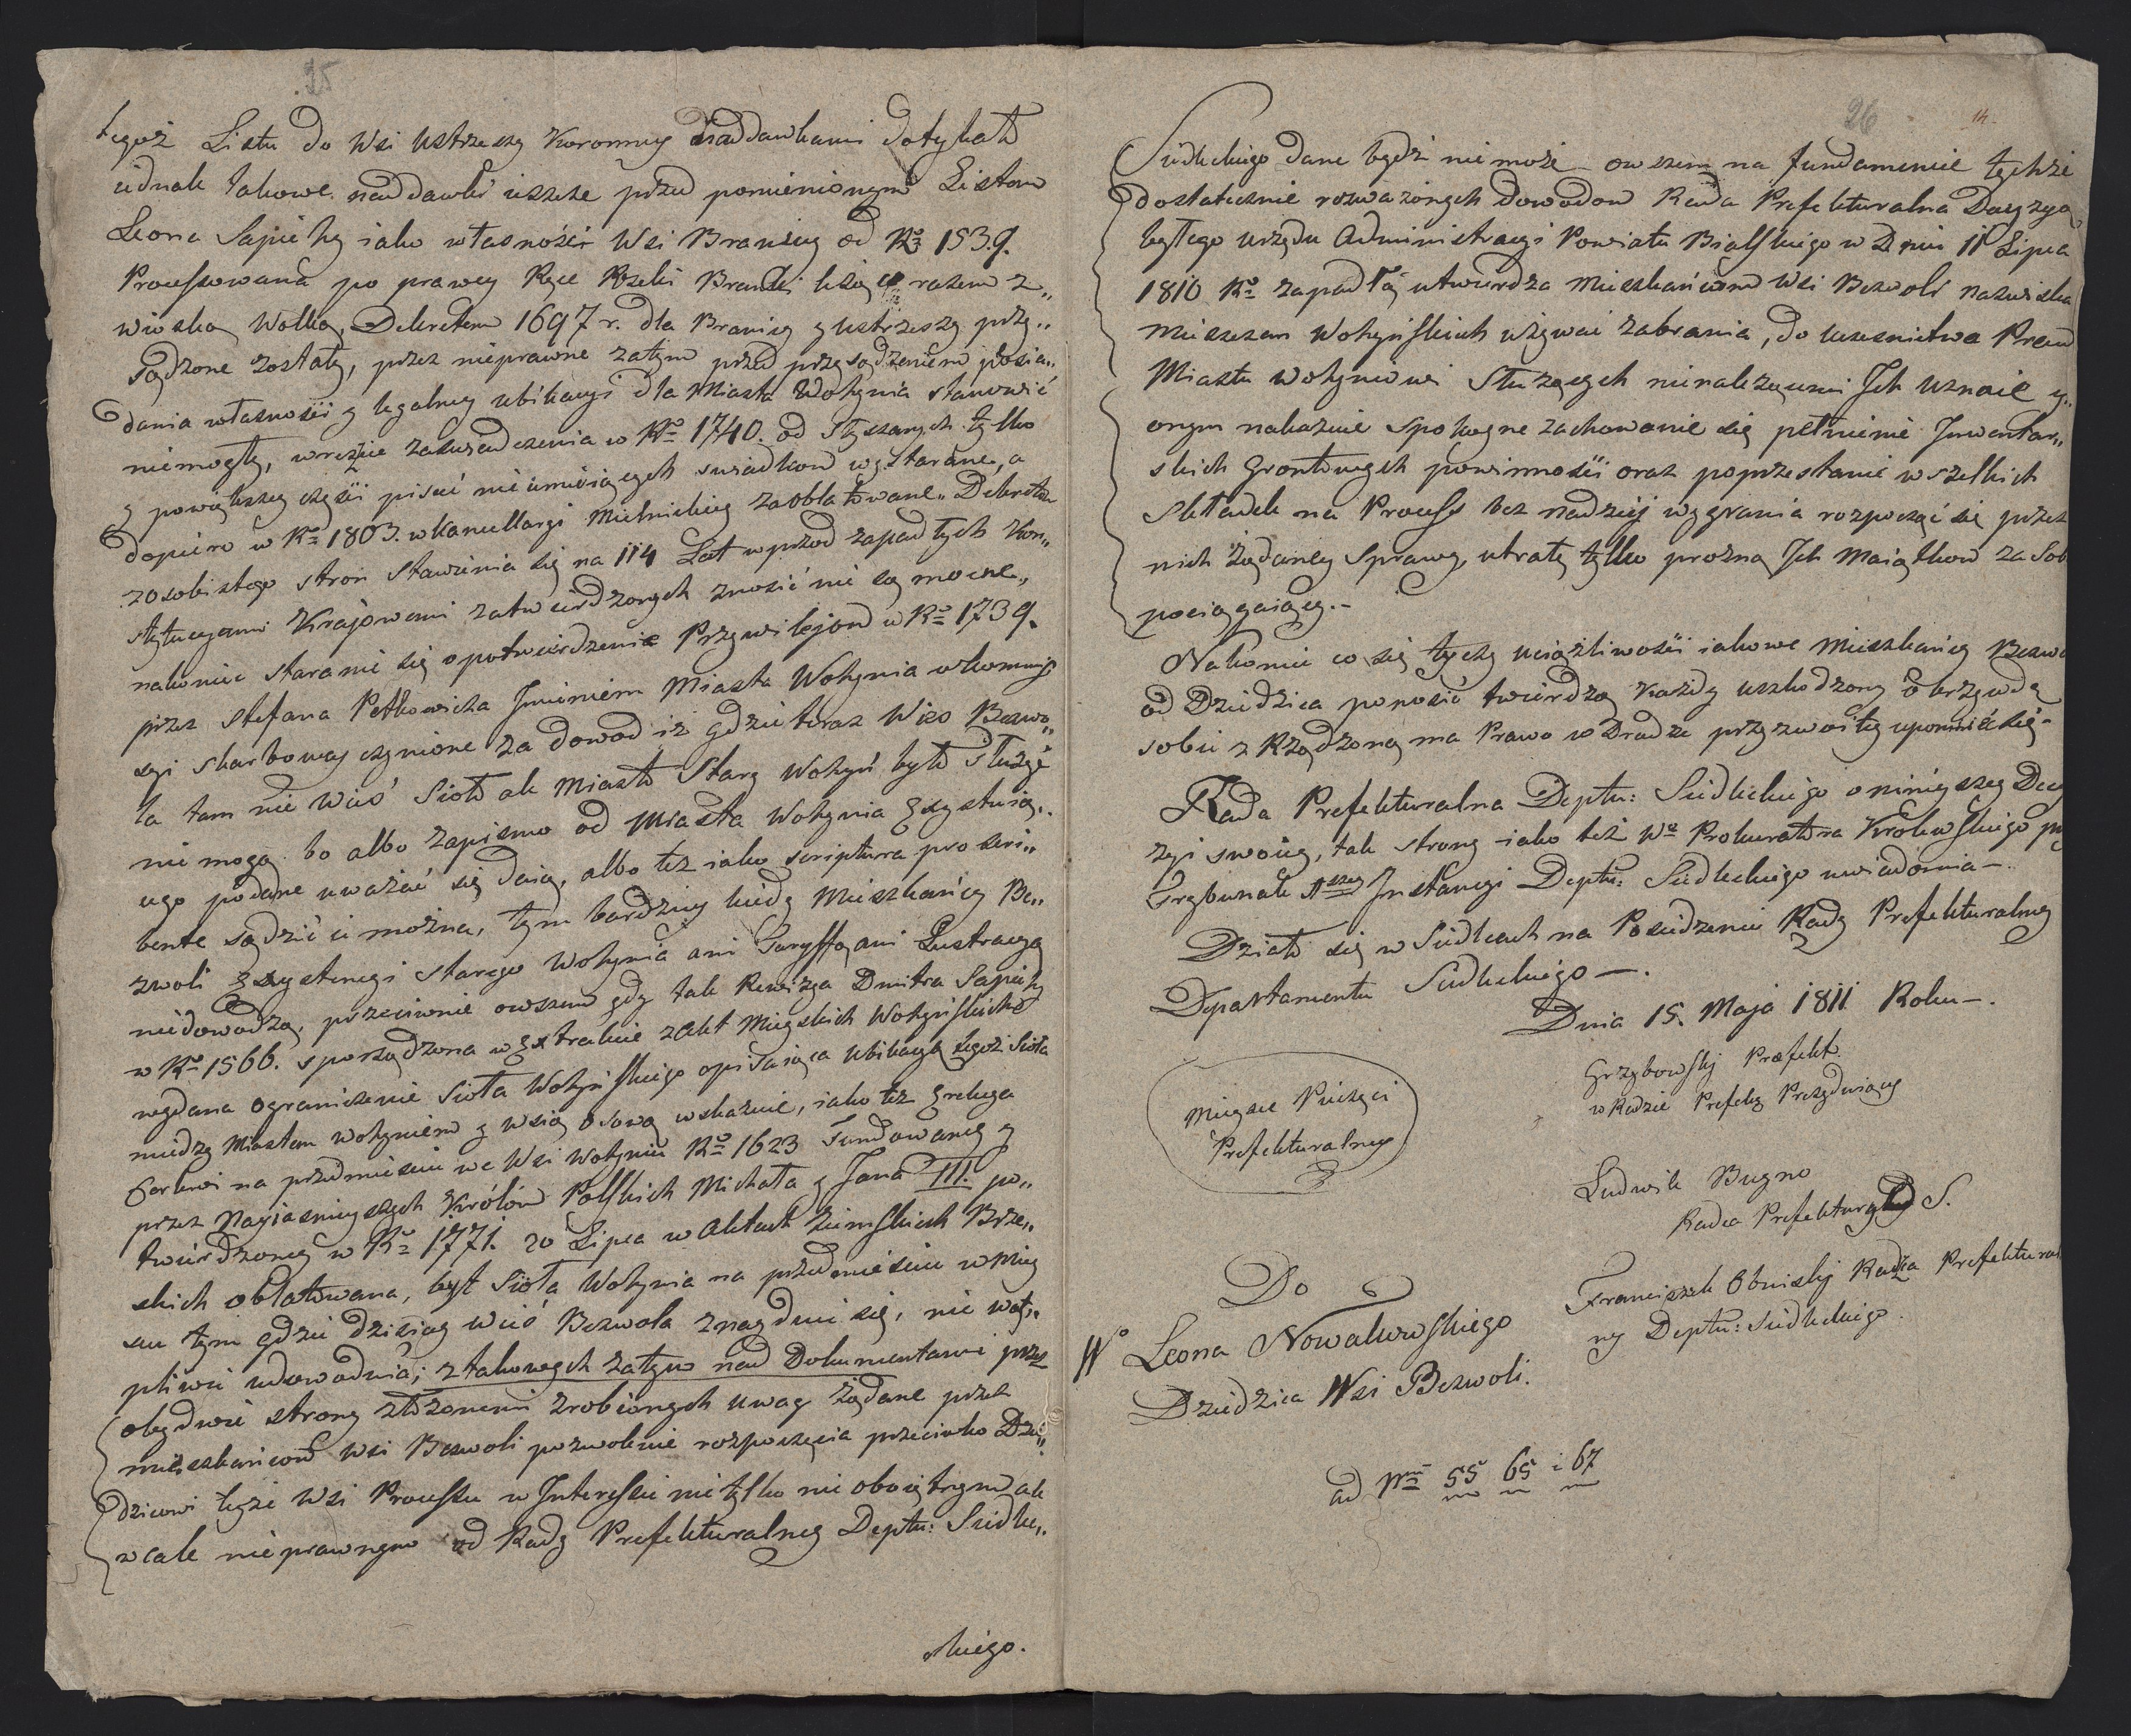 25
tegoż Listu do Wsi Ustrzeszy Koronney naddawkami dotykało
iednak takowe naddawki ieszcze przed pomienionym Listem
Leona Sapiehy iako własność Wsi Branicy od Ro 1539.
Processowana po prawey Ręce Rzeki Branki leżące razem z„
wioską Wolką, Dekretem 1697 r. dla Branicy y Ustrzeszy przy„
sądzone zostały, przez nieprawne zatym przed przysądzeniem posia„
dania własności y legalney ubikacyi dla Miasta Wohynia stanowić
niemogły, wreszcie zaświadczenia w Ro 1740. od Słyszanych tylko
y powiększey części pisać nieumieiących swiadkow wystarane, a
dopiero w Ro 1803. w Kancellaryi Mielnickiey zaoblatowane„ Dekretow
zosobistego stron stawienia się na 114 Lat wprzod zapadłych Kon„
stytucyami Kraiowemi zatwierdzonych znosić nie są mocne„
nakoniec staranie się o potwierdzenie Przywilejow w Ro 1739.
przez Stefana Petkowicza Imieniem Miasta Wohynia w kommis
syi skarbowey czynione za dowod iż gdzie teraz Wieś Bezwo„
la tam nie Wieś Sioło ale Miasto Stary Wohyń było służyć
nie mogą. bo albo zapismo od Miasta Wohynia Exystuią„
cego podane uważać się daią, albo też iako scriptura pro scri„
bente sądzić ie można, tym bardziey kiedy Mieszkańcy Be„
zwoli Exystencyi starego Wohynia ani Taryffą ani Lustracyą
niedowodzą, przeciwnie owszem gdy tak Rewizya Dmitra Sapiehy
w Ro 1566. sporządzona w Extrakcie z Akt Mieyskich Wohyńskich
wydana Ograniczenie Sioła Wohyńskiego opisuiąca ubikacyą tegoż Sioła
miedzy Miastem Wohyniem y wsią Osową wskazuie, iako też Erekcya
Cerkwi na przedmieściu we Wsi Wohyniu Ro 1623 Fundowaney y
przez Nayiasnieyszych Królów Polskich Michała y Jana III. po„
twierdzoney w Ro 1771. 20 Lipca w Aktach Ziemskich Brze„
skich oblatowana, byt Sioła Wohynia na przedmieściu w miey
scu tym gdzie dzisiay wieś Bezwola znayduie się, nie wąt„
pliwie udowodnia; z takowych zatym nad Dokumentami przez
obydwie strony złożonemi zrobionych uwag żądane przez
mieszkańcow Wsi Bezwoli pozwolenie rozpoczęcia przeciwko Dzie„
dzicowi teyże Wsi Processu w Interessie nietylko nie obciętnym ale
wcale nieprawnym od Rady Prefekturalney Deptu: Siedle„
ckiego.
26
14.
Siedleckiego dane bydź niemoże owszem na fundamencie tychże
dostatecznie rozważonych dowodow Rada Prefekturalna Decyzyą
byłego urzędu Administracyi Powiatu Bialskiego w Dniu 11 Lipca
1810 Ro zapadłą utwierdza mieszkańcom Wsi Bezwoli nazwiska
mieszczan Wohyńskich używać zabrania, do uczesnictwa Praw
Miastu Wohyniowi Służących nienależącemi Ich uznaie y„
onym nakazuie spokoyne zachowanie się pełnienie Inwentar„
skich Gruntowych powinności oraz poprzestanie wszelkich
składek na Process bez nadziej wygrania rozpocząć się przez
nich żądaney Sprawy, utratę tylko prożną Ich Maiątkow za Sob
pociągaiącey.-
Nakoniec co się tyczy uciążliwości iakowe Mieszkańcy Bezwo
od Dziedzica ponosić twierdzą każdy uszkodzony o krzywdę
sobie zrządzoną ma Prawo w Drodze przyzwoitey upomnić się-
Rada Prefekturalna Deptu: Siedleckiego o ninieyszey Decy
zyi swoiey, tak strony iako też Wo Prokuratora Królewskiego pr
Trybunale 1szey Instancyi Deptu: Siedleckiego uwiadomia-.
Działo się w Siedlcach na Posiedzeniu Rady Prefekturalney
Departamentu Siedleckiego-.
Dnia 15. Maja 1811 Roku-.
Grzybowskj Præfekt
w Radzie Prefekty Prezyduiący
Mieysce Pieczęci
Prefekturalney
Ludwik Bugno
Radca Prefekturalny D S.
Franciszek Obniskj Radca Prefektural
ny Deptu: Siedleckiego.
Do
Wo Leona Nowakowskiego
Dziedzica Wsi Bezwoli.
ad Nra 55 65 i 67